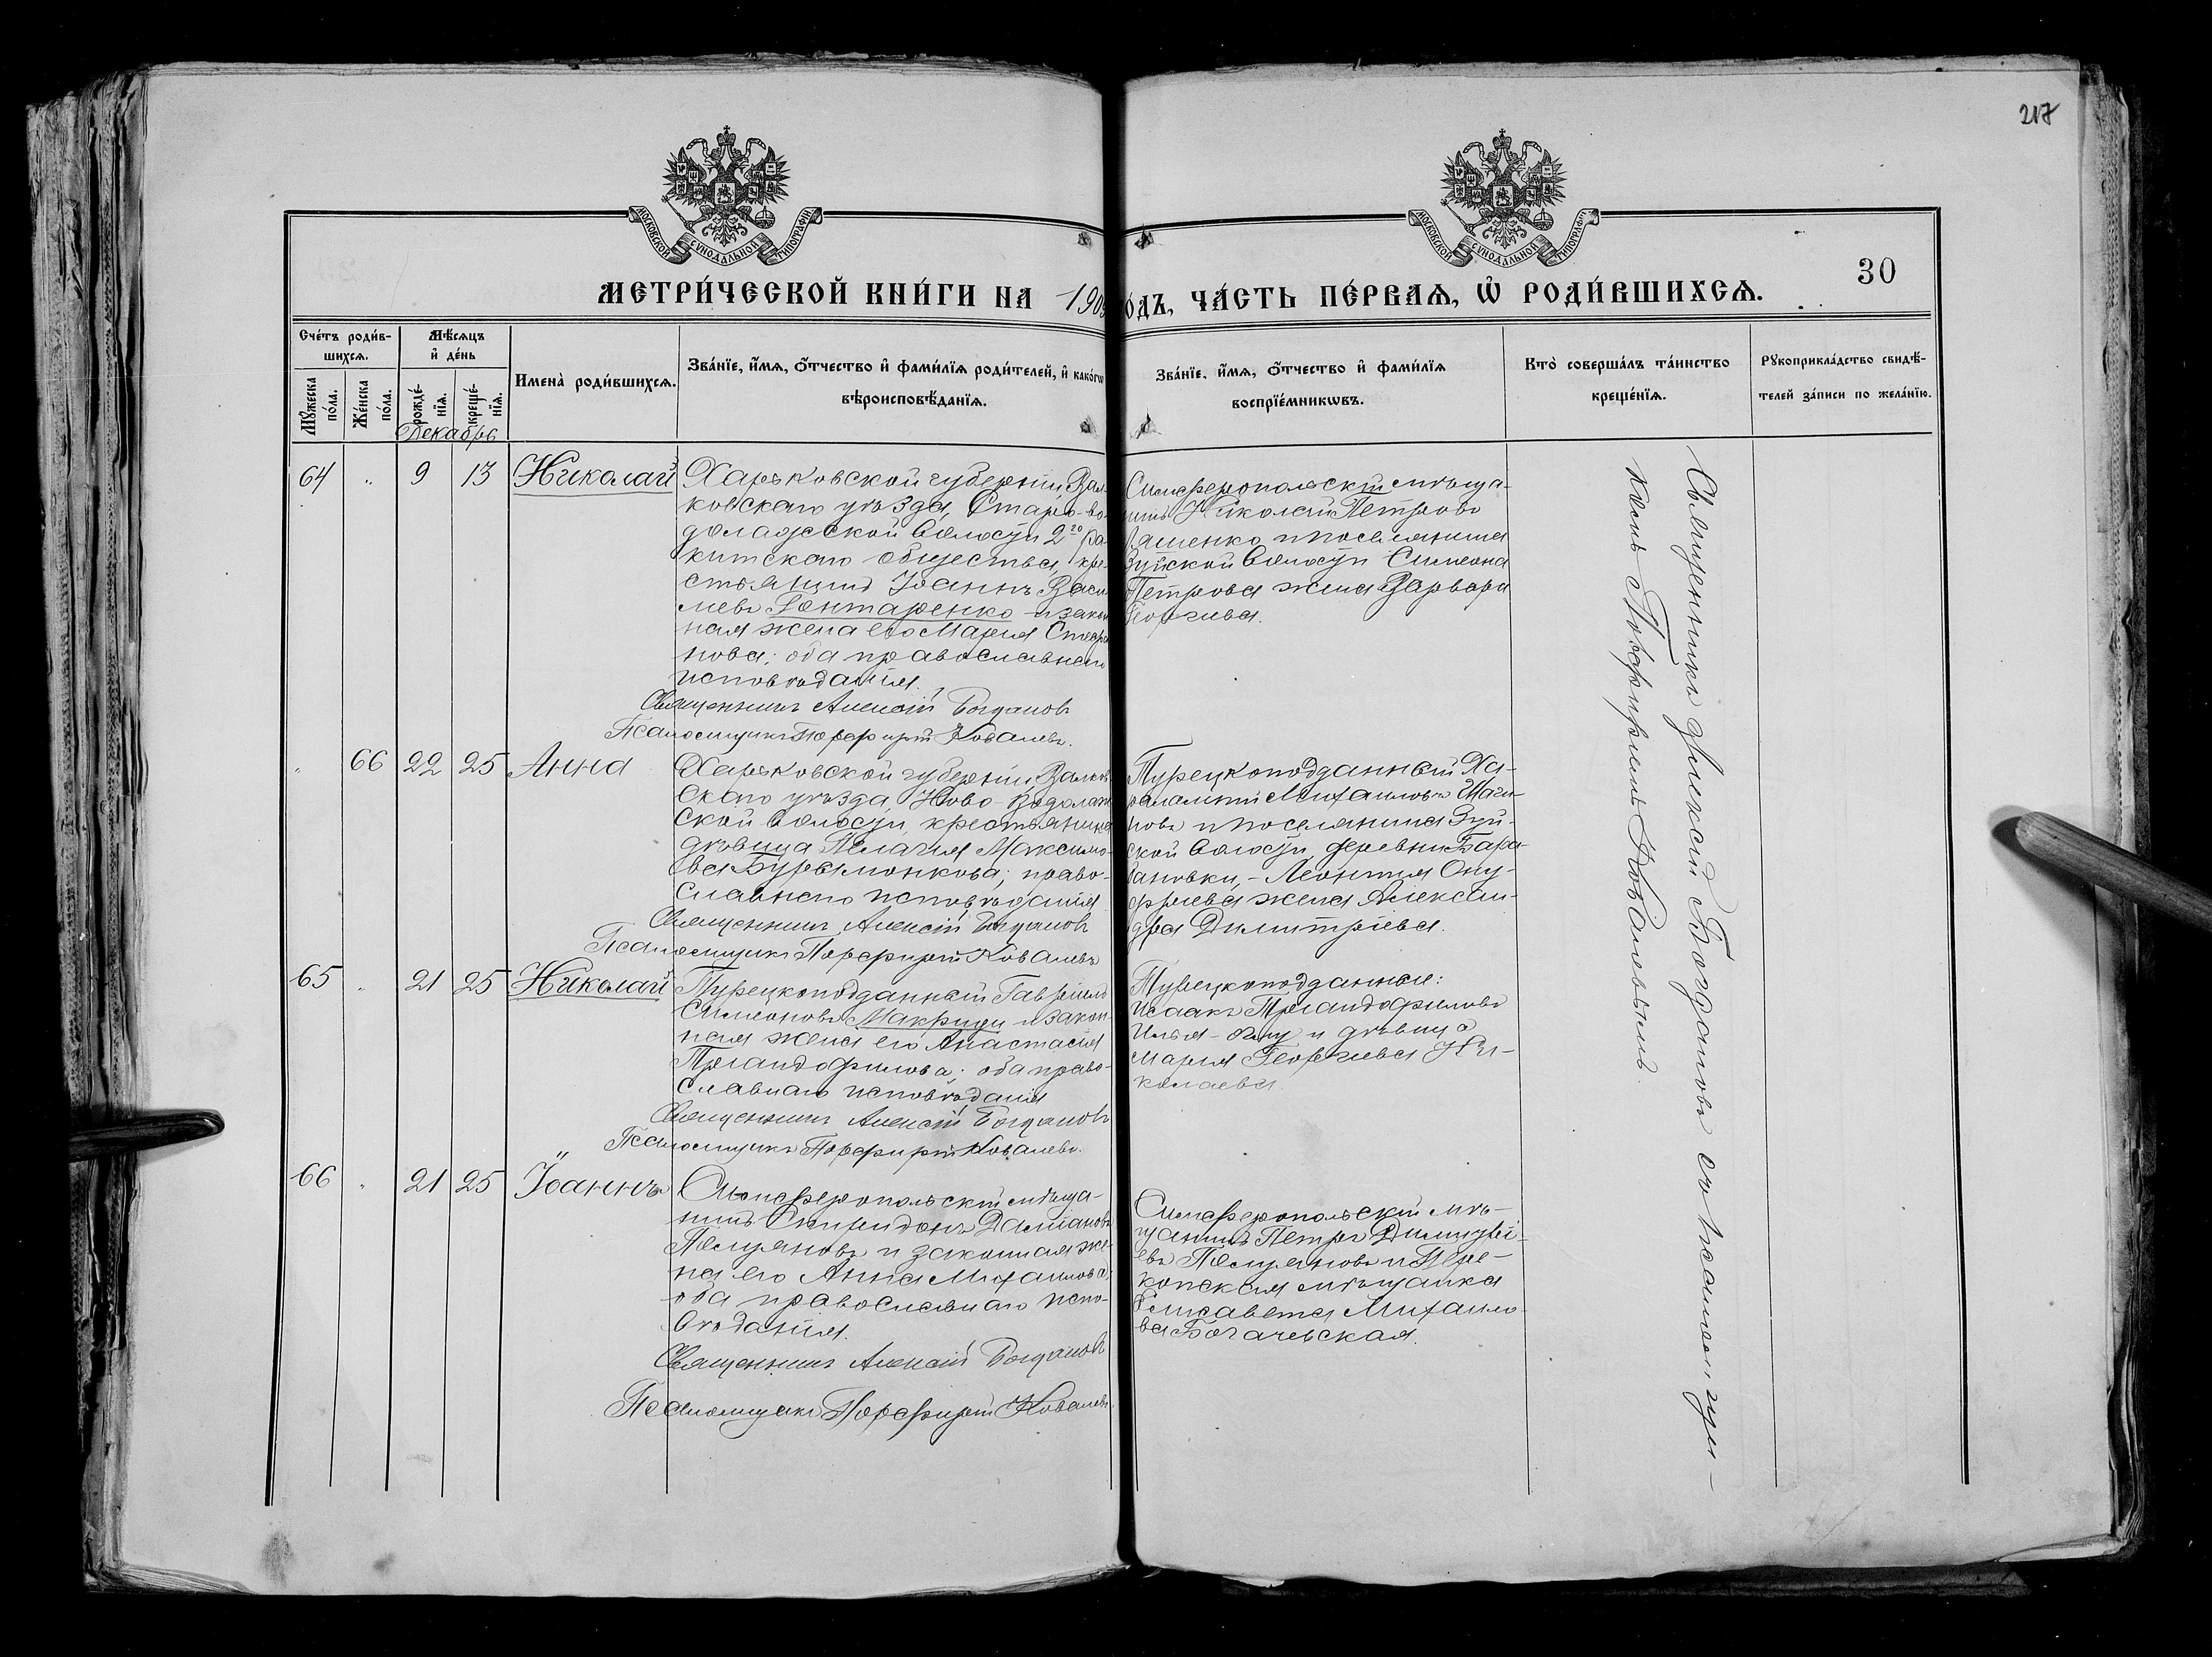 217
МОСКОВСКОЙ СУНОДАЛЬНОЙ ТИПОГРАФІИ
МОСКОВСКОЙ СУНОДАЛЬНОЙ ТИПОГРАФІИ
30
МЕТРИ́ЧЕСКОЙ КНИ́ГИ НА 190
О́ДЪ, ЧА́СТЬ ПЕ́РВАѦ, Ѡ҆ РОДИ́ВШИХСѦ.
Сче́тъ роди́в-
шихсѧ.
Мꙋ́жеска по́ла.
Же́нска по́ла.
Мѣ́сѧцъ
и҆ де́нь
рожде́-
нїѧ.
креще́-
нїѧ.
Декабрь
Имена̀ роди́вшихсѧ.
Зва́нїе, и҆́мѧ, ѻ҆́тчество и҆ фами́лїѧ роди́телей, и҆ како́гѡ
вѣроисповѣ́данїѧ.
Зва́нїе, и҆́мѧ, ѻ҆́тчество и҆ фами́лїѧ
воспрїе́мникѡвъ.
Кто̀ соверша́лъ та́инство
креще́нїѧ.
Рꙋкоприкла́дство свидѣ́-
телей за́писи по жела́нїю.
64 " 9 13 Николай
Харьковской губерніи, Вал-
ковскаго уѣзда, Старо-во-
доложской волости 2го Ра-
китскаго общества, кре-
стьянинъ Іоаннъ Васи
льевъ Гонтаренко и закон
ная жена его Марія Стефа
нова; оба православнаго
исповѣданія.
Священникъ Алексій Богдановъ
Псаломщикъ Порфирій Ковалевъ.
Симферопольскій мѣща-
нинъ Николай Петровъ
Ляшенко и поселянина
Зуйской волости Симеона
Петрова жена Варвара
Георгиева.
Священникъ Алексій Богдановъ съ псаломщи-
комъ Порфиріемъ Ковалевымъ.
" 66 22 25 Анна
Харьковской губерніи, Валков
скаго уѣзда, Ново-Водолаж
ской волости, крестьянина
дѣвица Пелагія Максимо-
ва Бурьямонкова; право-
славнаго исповѣданія
Священникъ Алексій Богдановъ
Псаломщикъ Порфирій Ковалевъ
Турецкоподданный Ха-
ралампій Михаиловъ
новъ и поселянина Зуй-
ской волости, деревни Бара-
бановки,- Леонтия Ону-
фриева жена Алексан-
дра Димитріева.
65 " 21 25 Николай
Турецкоподданный Гавріилъ
Симеоновъ Макриди и закон
ная жена его Анастасія
Тріандофилова; оба право-
славнаго исповѣданія
Священникъ Алексій Богдановъ
Псаломщикъ Порфирій Ковалевъ.
Турецкоподданные:
Исаакъ Тріандофиловъ
и дѣвица
Марія Георгиева Ни-
колаева.
66 " 21 25 Іоаннъ
Симферопольскій мѣща-
нинъ Спиридонъ Даміановъ
и законная же-
на его Анна Михаилова;
оба православнаго испо-
вѣданія.
Священникъ Алексій Богдановъ
Псаломщикъ Порфирій Ковалевъ.
Симферопольскій мѣ-
щанинъ Петръ Димитрі-
евъ и Пере-
копская мѣщанка
Елисавета Михаило-
ва Богачевская.